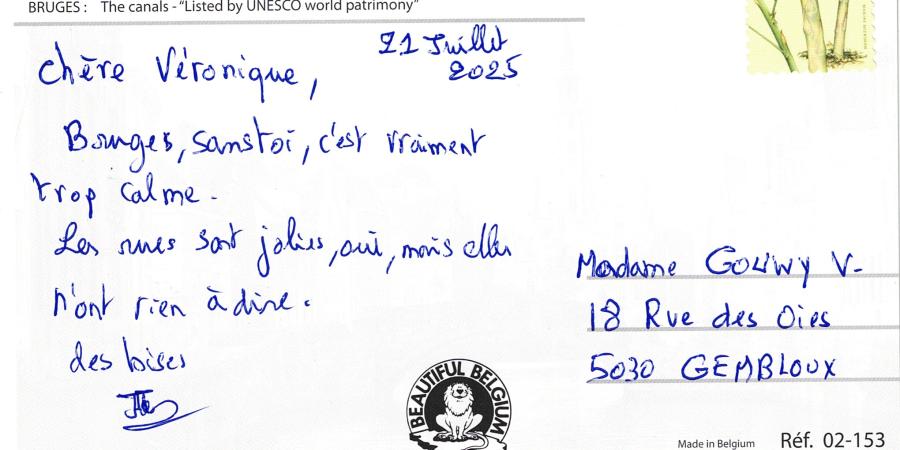 BRUGES : The canals - "Listed by UNESCO world patrimony"
21 Juillet
2025
Chère Véronique,
Bruges, sans toi, c'est vraiment
trop calme.
Les rues sont jolies, oui, mais elles
n'ont rien à dire.
des bises
Madame GOUWY V.
18 Rue des Oies
5030 GEMBLOUX
BEAUTIFUL BELGIUM
Made in Belgium
Réf. 02-153